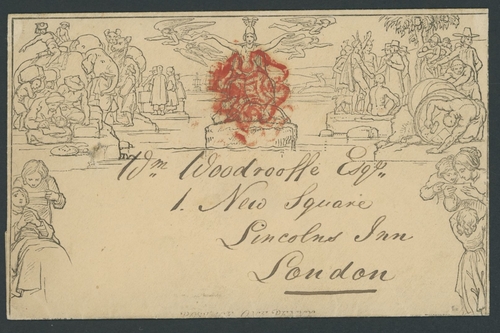 Wm Woodrooffe Esqr
1. New Square
Lincolns Inn
London